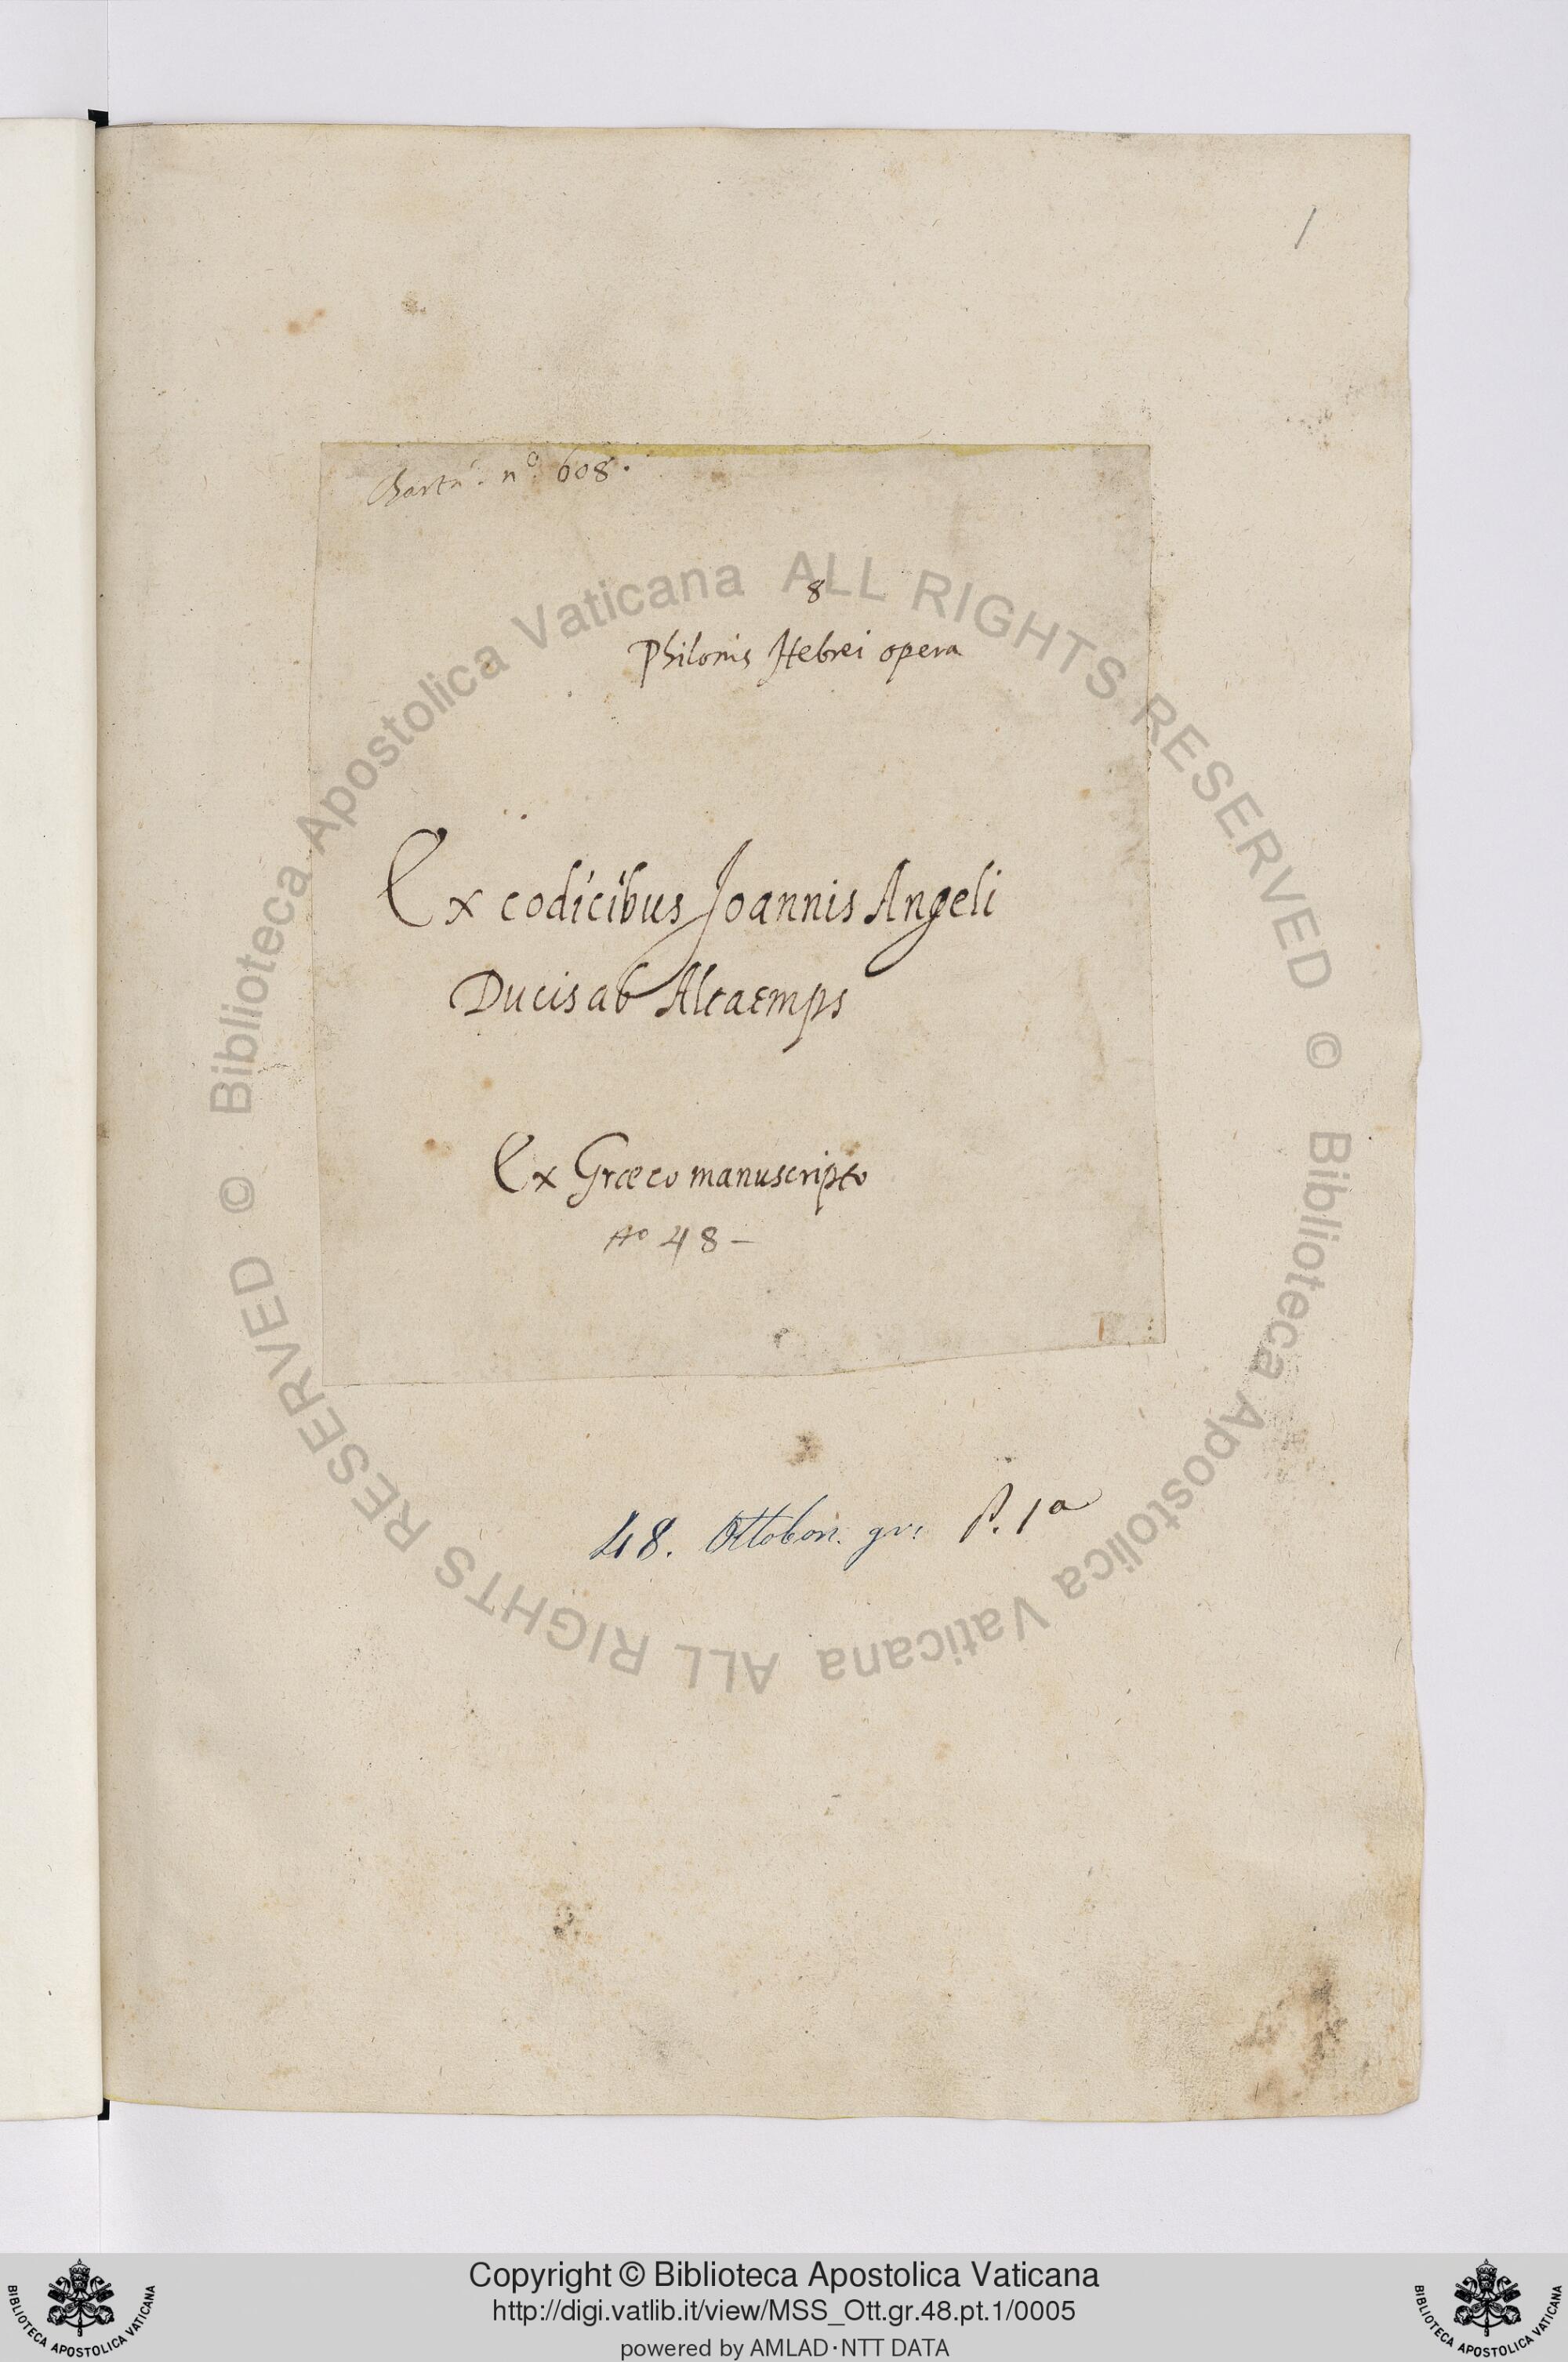 1
Charta. nº. 608.
8
Philonis Hebrei opera
Ex codicibus Joannis Angeli
Ducis ab Altaemps
Ex Græco manuscripto
Nº 48 -
48. Ottobon. gr: P. 1ª
© Biblioteca Apostolica Vaticana ALL RIGHTS RESERVED
© Biblioteca Apostolica Vaticana ALL RIGHTS RESERVED
Copyright © Biblioteca Apostolica Vaticana
http://digi.vatlib.it/view/MSS_Ott.gr.48.pt.1/0005
powered by AMLAD·NTT DATA
BIBLIOTECA APOSTOLICA VATICANA
BIBLIOTECA APOSTOLICA VATICANA